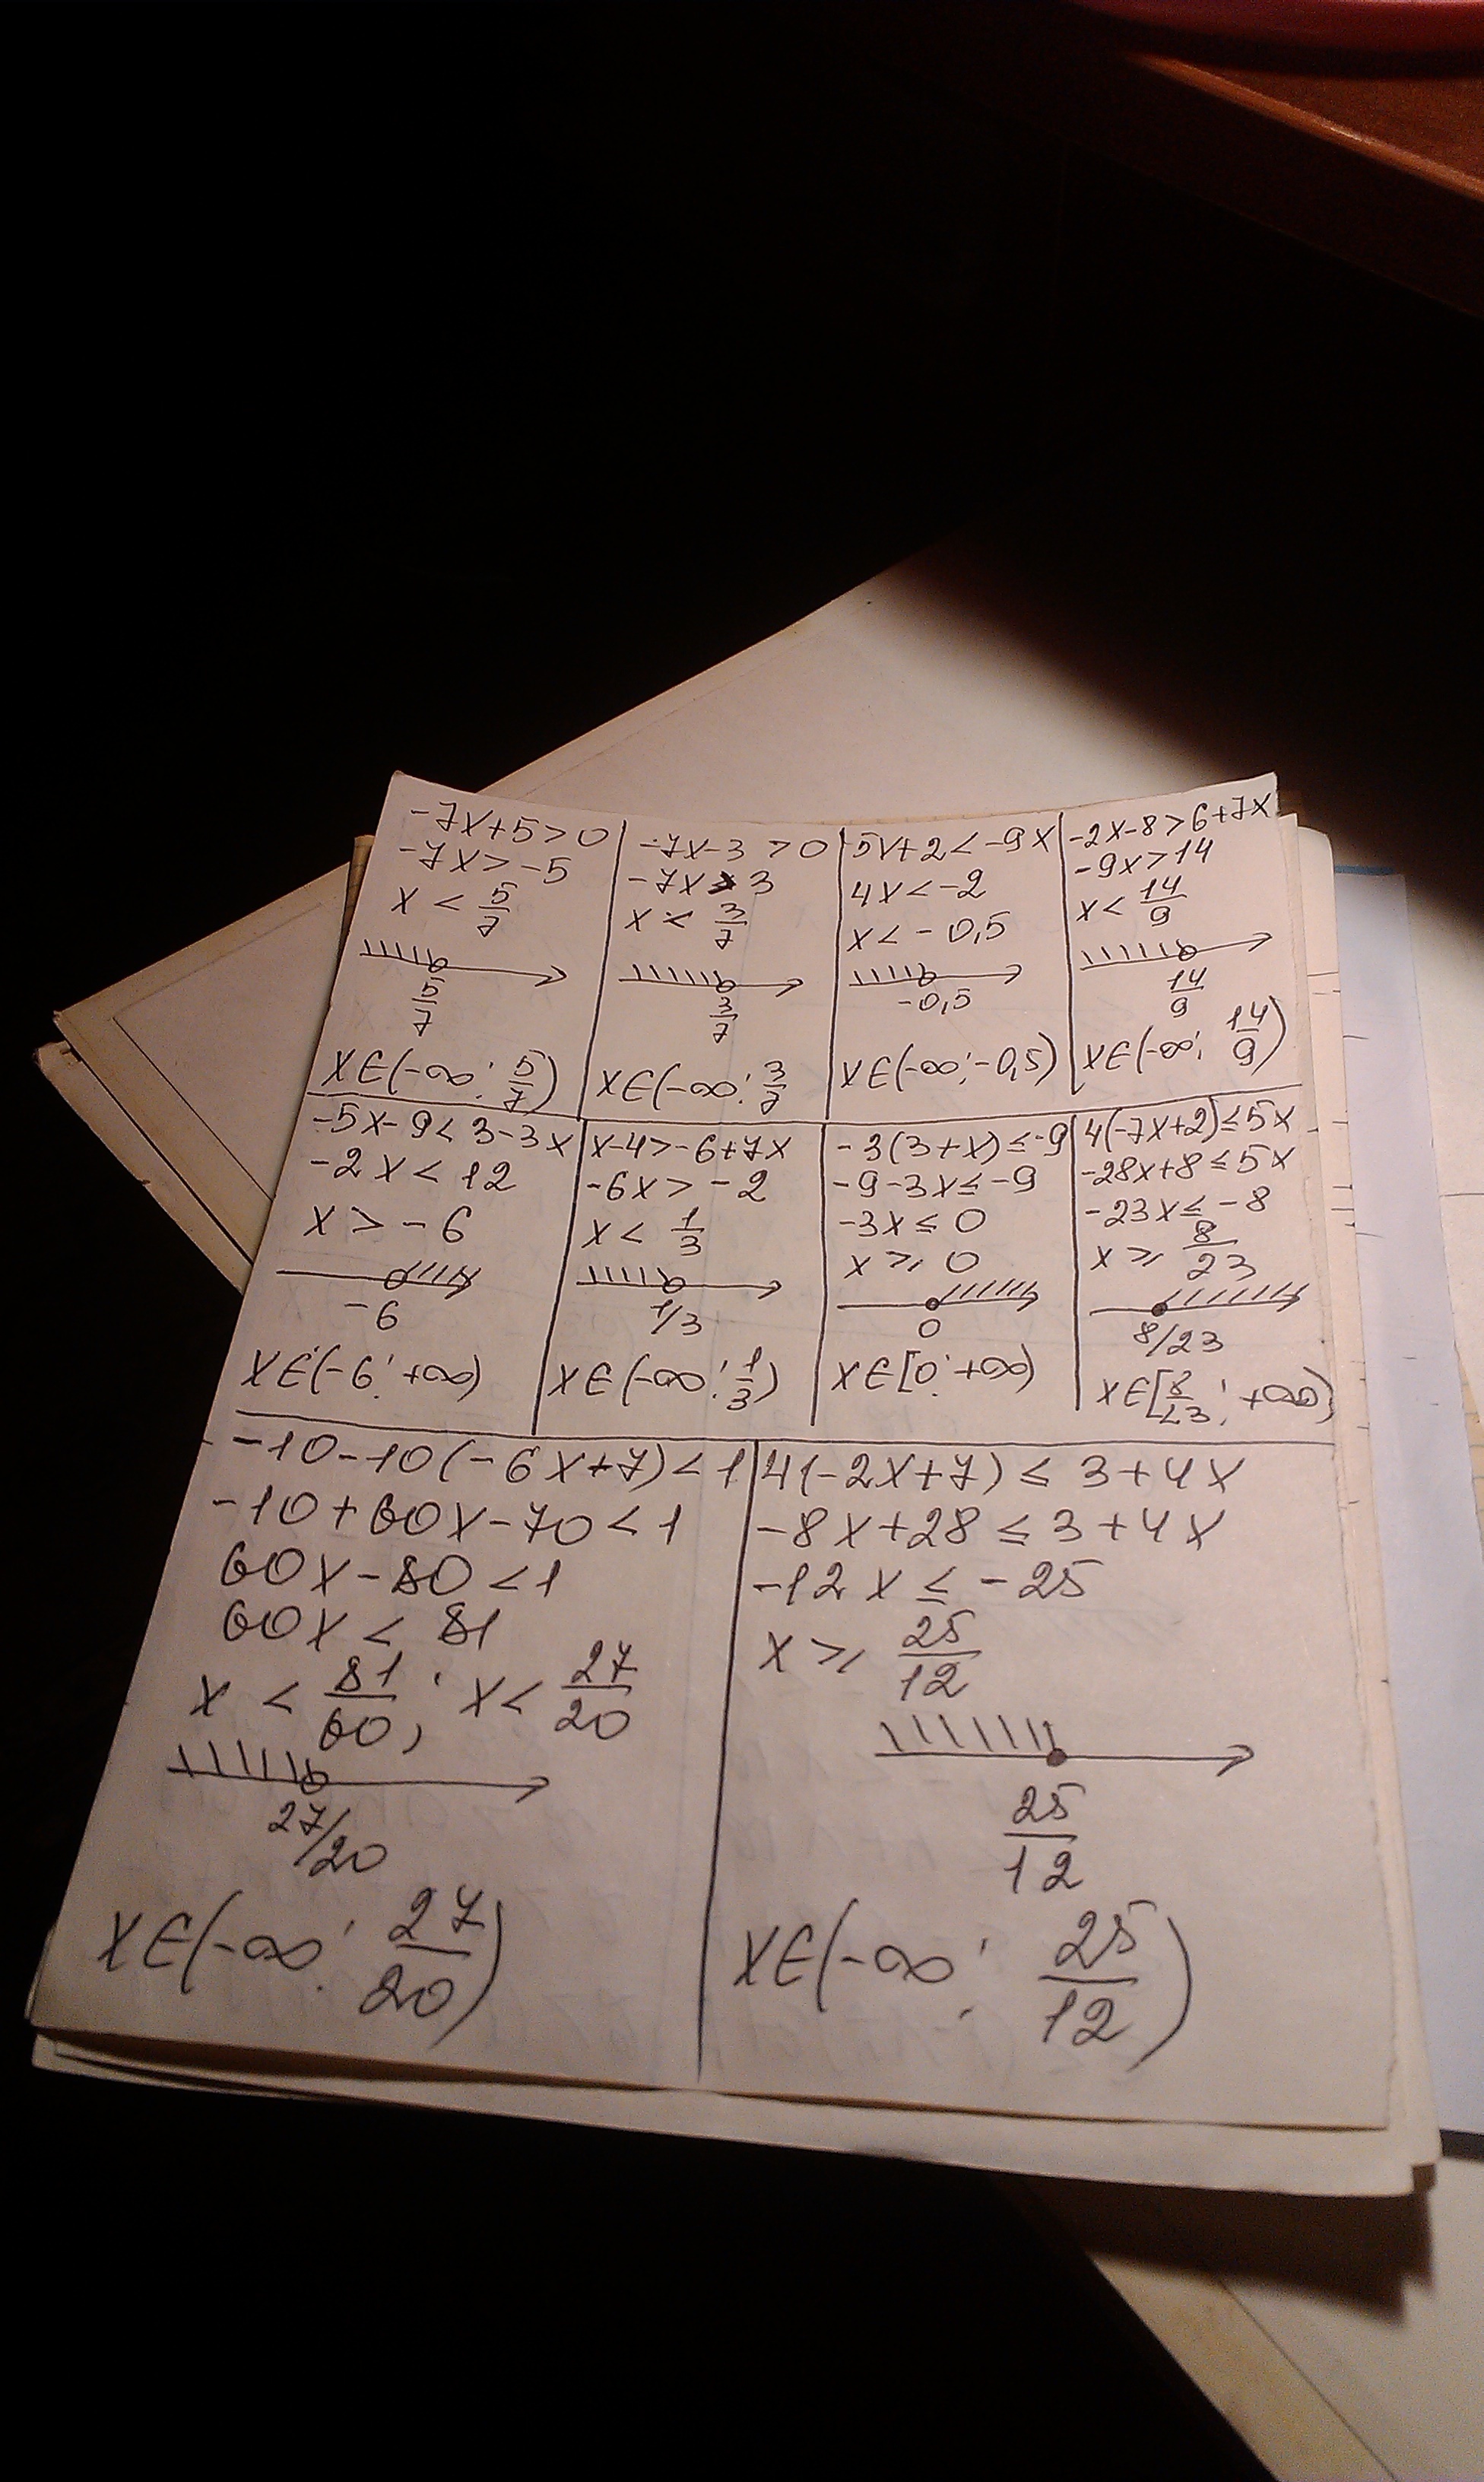 -7x+5>0
-7x>-5
x < 5/7
5/7
x∈(-∞; 5/7)
-7x-3 >0
-7x > 3
x < 3/7
3/7
x∈(-∞; 3/7
5x+2<-9x
4x<-2
x<-0,5
-0,5
x∈(-∞;-0,5)
-2x-8>6+7x
-9x>14
x< 14/9
14/9
x∈(-∞; 14/9)
-5x-9<3-3x
-2x<12
x>-6
-6
x∈(-6; +∞)
x-4>-6+7x
-6x>-2
x< 1/3
1/3
x∈(-∞; 1/3)
-3(3+x)≤-9
-9-3x≤-9
-3x≤0
x≥0
0
x∈[0; +∞)
4(-7x+2)≤5x
-28x+8≤5x
-23x≤-8
x≥ 8/23
8/23
x∈[8/23; +∞)
-10-10(-6x+7)<1
-10+60x-70<1
60x-80<1
60x<81
x < 81/60; x< 27/20
27/20
x∈(-∞; 27/20)
4(-2x+7)≤3+4x
-8x+28≤3+4x
-12x≤-25
x≥ 25/12
25/12
x∈(-∞; 25/12)